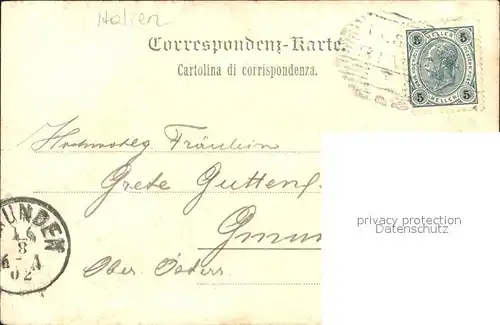 Italien
Correspondenz-Karte.
Cartolina di corrispondenza.
5 HELLER 5
5 HELLER 5
Hochwohlg Fräulein
Grete Guttenb
Gmun
Ober. Österr.
UNDEN
8
02
privacy protection
Datenschutz